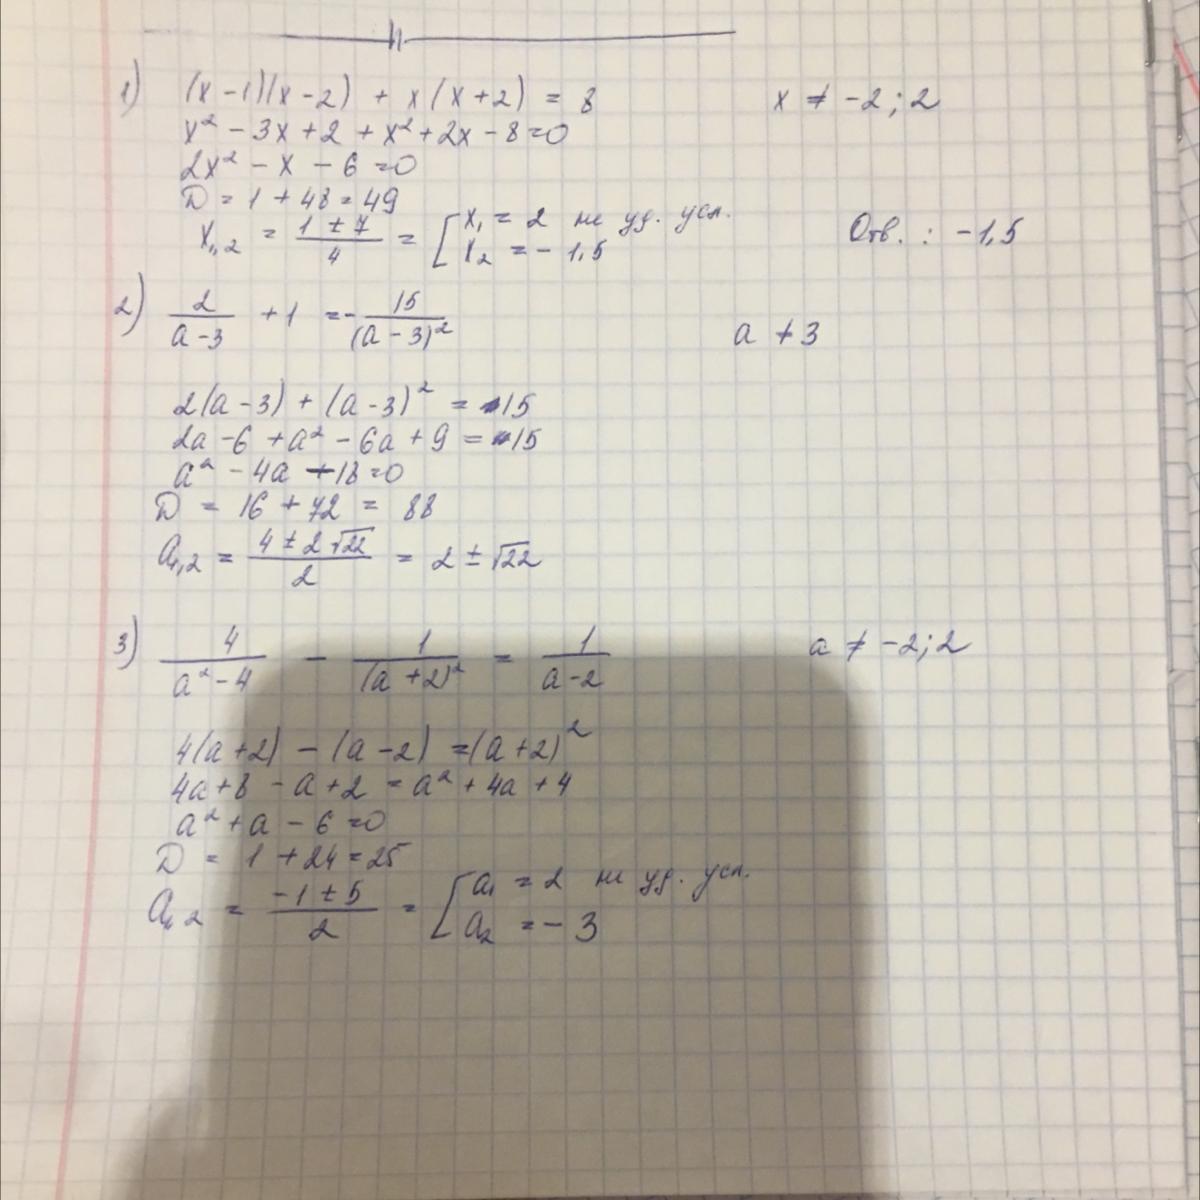 1) (x-1)(x-2) + x(x+2) = 8 x ≠ -2; 2
x² - 3x + 2 + x² + 2x - 8 = 0
2x² - x - 6 = 0
D = 1 + 48 = 49
x1,2 = (1 ± 7)/4 = [ x1 = 2 не уд. усл.
x2 = -1,5 Отв.: -1,5
2) 2/(a-3) + 1 = - 15/(a-3)² a ≠ 3
2(a-3) + (a-3)² = -15
2a - 6 + a² - 6a + 9 = -15
a² - 4a + 18 = 0
D = 16 + 72 = 88
a1,2 = (4 ± 2√22)/2 = 2 ± √22
3) 4/(a²-4) - 1/(a+2)² = 1/(a-2) a ≠ -2; 2
4(a+2) - (a-2) = (a+2)²
4a + 8 - a + 2 = a² + 4a + 4
a² + a - 6 = 0
D = 1 + 24 = 25
a1,2 = (-1 ± 5)/2 = [ a1 = 2 не уд. усл.
a2 = -3